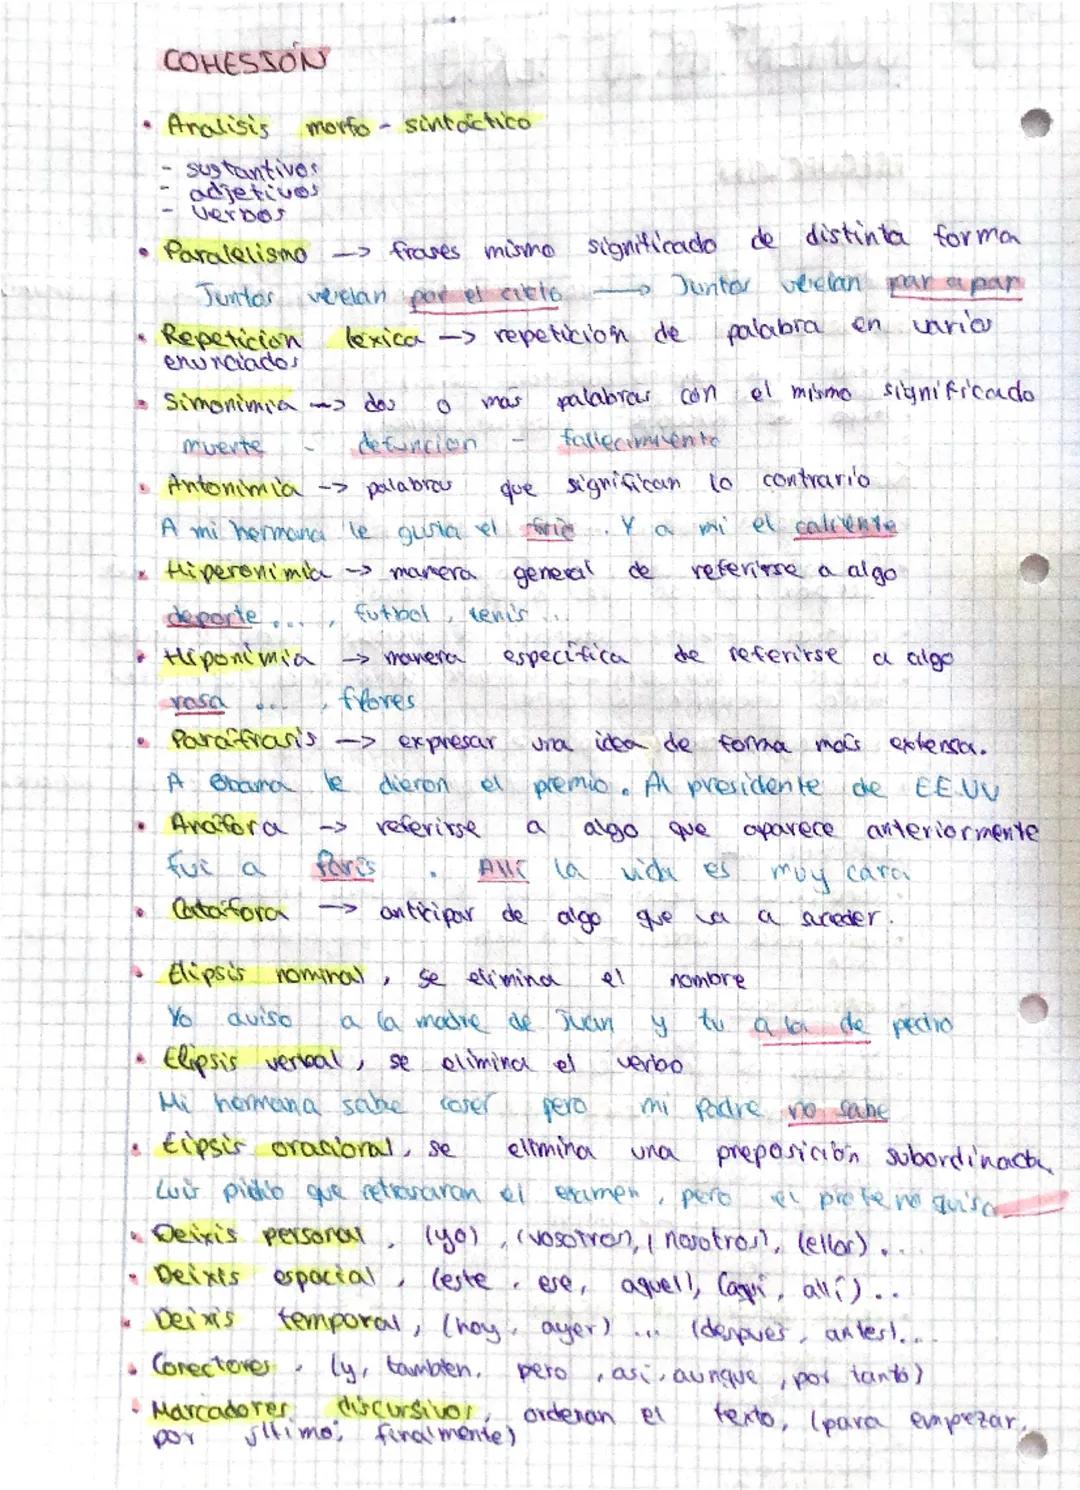 COHESIÓN
• Analisis morfo - sintáctico
- sustantivos
- adjetivos
- verbos
• Paralelismo -> frases mismo significado de distinta forma
Juntos vuelan por el cielo -> Juntos vuelan par a par
• Repeticion léxica -> repetición de palabra en varios
enunciados
• Simonimia -> dos o más palabras con el mismo significado
muerte - defuncion - fallecimiento
• Antonimia -> palabras que significan lo contrario
A mi hermana le gusta el frio. Y a mi el caliente
• Hiperonimia -> manera general de referirse a algo
deporte..., futbol, tenis...
• Hiponimia -> manera específica de referirse a algo
rosa ..., flores
• Paráfrasis -> expresar una idea de forma más extensa.
A Obama le dieron el premio. Al presidente de EEUU
• Anáfora -> referirse a algo que aparece anteriormente
fui a París. Allí la vida es muy cara
• Catáfora -> anticipar de algo que va a suceder.
• Elipsis nominal, se elimina el nombre
Yo aviso a la madre de Juan y tu a la de pedro
• Elipsis verbal, se elimina el verbo
Mi hermana sabe coser pero mi padre no sabe
• Elipsis oracional, se elimina una preposición subordinada
Luis pidio que retrasaran el examen, pero el profe no quiso
• Deixis personal, (yo), (vosotros), (nosotros), (ellos)...
• Deixis espacial, (este, ese, aquel), (aquí, allí)...
• Deixis temporal, (hoy, ayer) ... (después, antes)...
• Conectores, (y, tambien, pero, así, aunque, por tanto)
• Marcadores discursivos, ordenan el texto, (para empezar,
por último, finalmente)